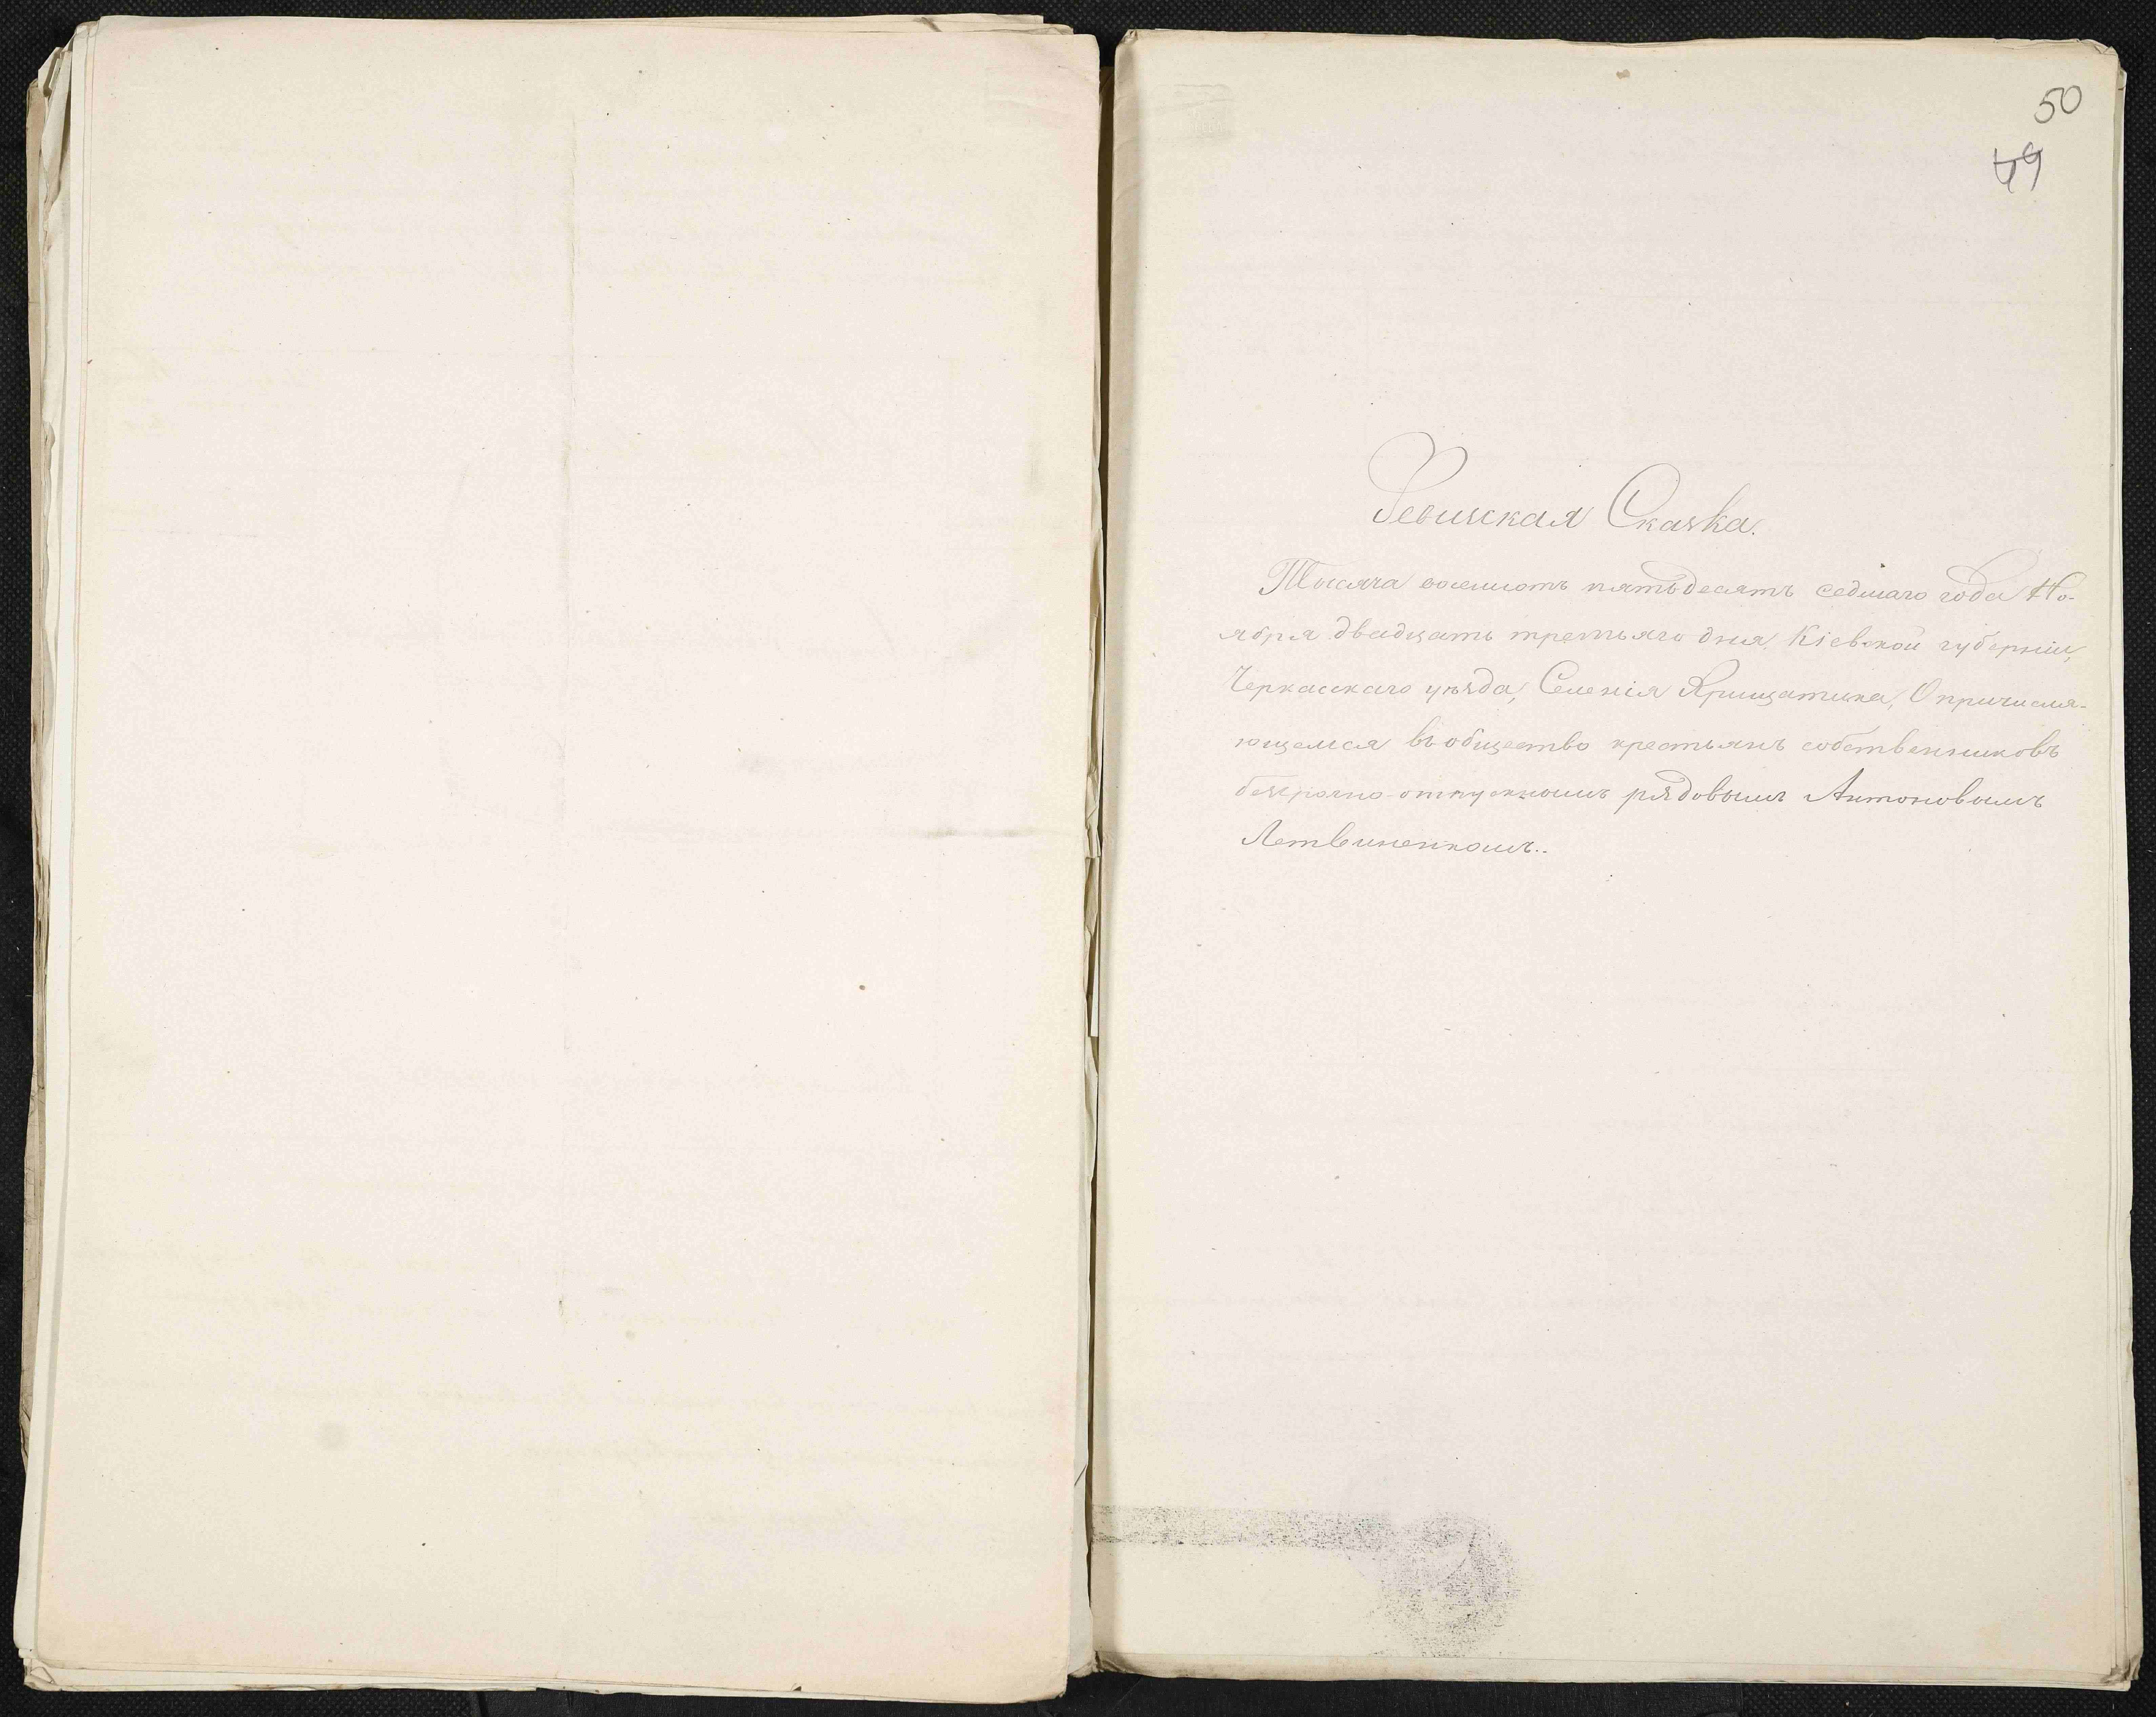 50
49
Ревизская Сказка.
Тысяча восемьсотъ пятьдесятъ седмаго года Но-
ября двадцать третьяго дня, Кіевской губерніи,
Черкасскаго уѣзда, Селенія Хрищатика, О причисля-
ющемся въ общество крестьянъ собственниковъ
безсрочно-отпускномъ рядовымъ Антоновымъ
Летвиненкомъ..